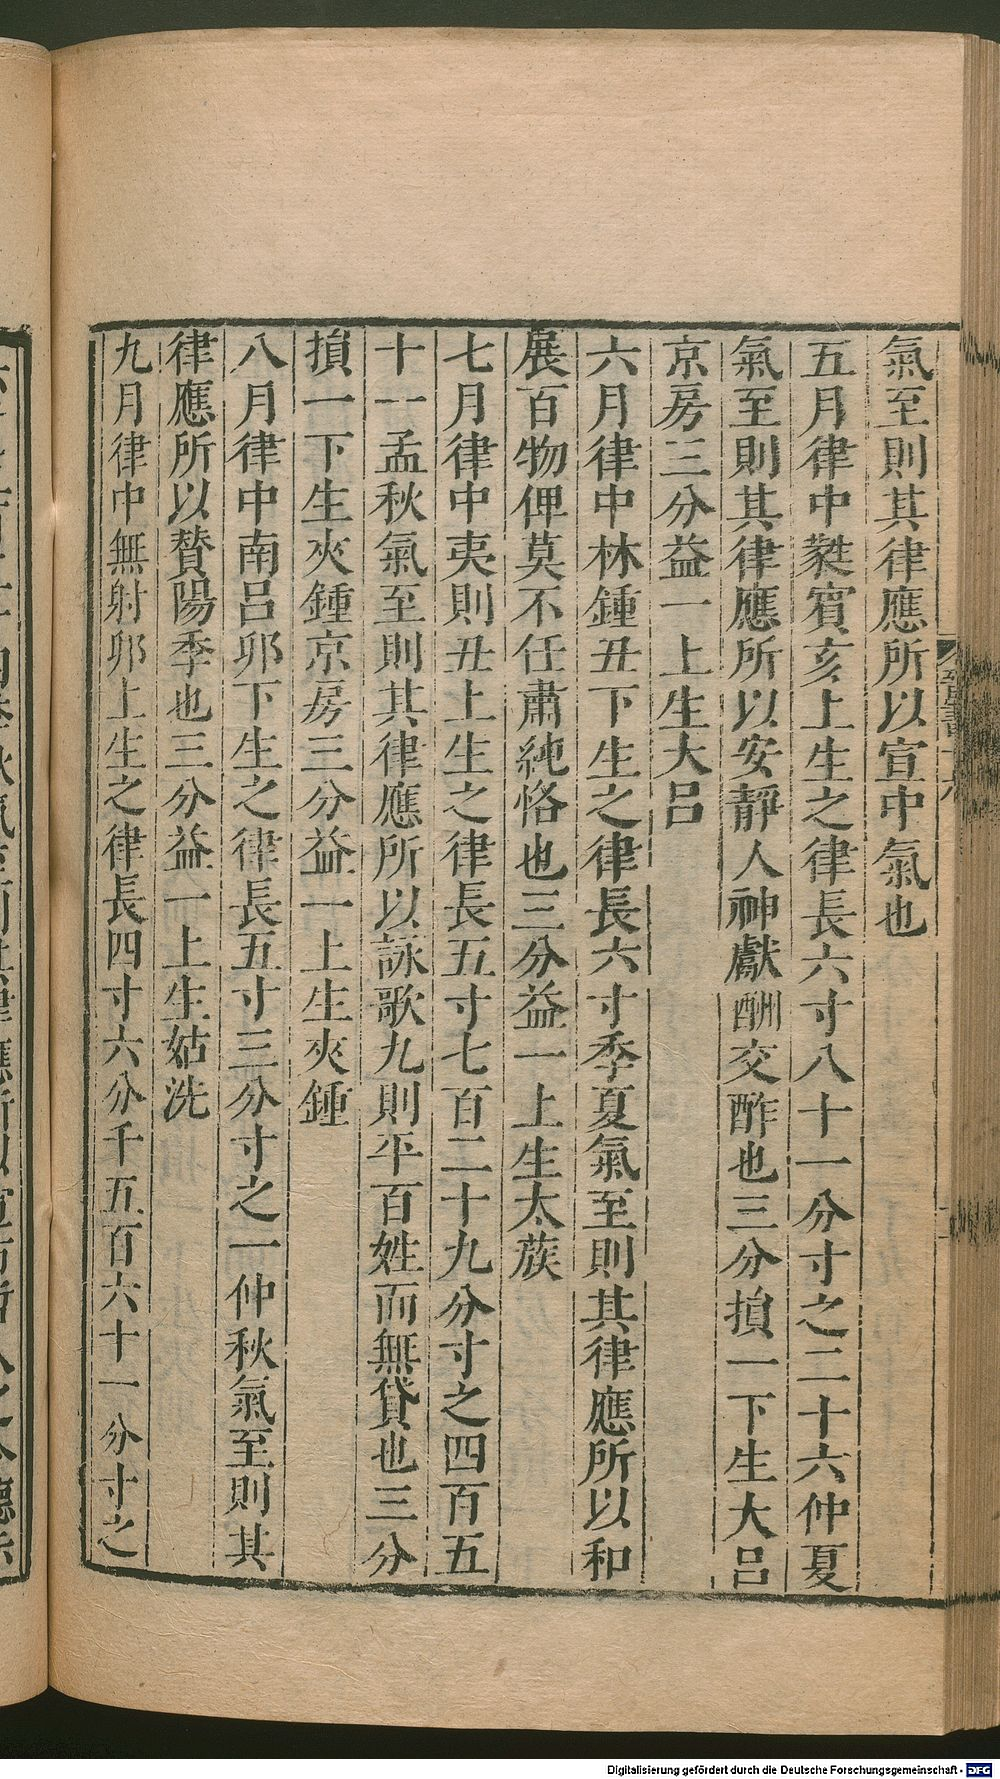 氣至則其律應所以宣中氣也
五月律中蕤賓亥上生之律長六寸八十一分寸之二十六仲夏
氣至則其律應所以安靜人神獻酬交酢也三分損一下生大呂
京房三分益一上生大呂
六月律中林鍾丑下生之律長六寸季夏氣至則其律應所以和
展百物俾莫不任肅純恪也三分益一上生太蔟
七月律中夷則丑上生之律長五寸七百二十九分寸之四百五
十一孟秋氣至則其律應所以詠歌九則平百姓而無貸也三分
損一下生夾鍾京房三分益一上生夾鍾
八月律中南呂卯下生之律長五寸三分寸之一仲秋氣至則其
律應所以贊陽季也三分益一上生姑洗
九月律中無射卯上生之律長四寸六分千五百六十一分寸之
Digitalisierung gefördert durch die Deutsche Forschungsgemeinschaft - DFG